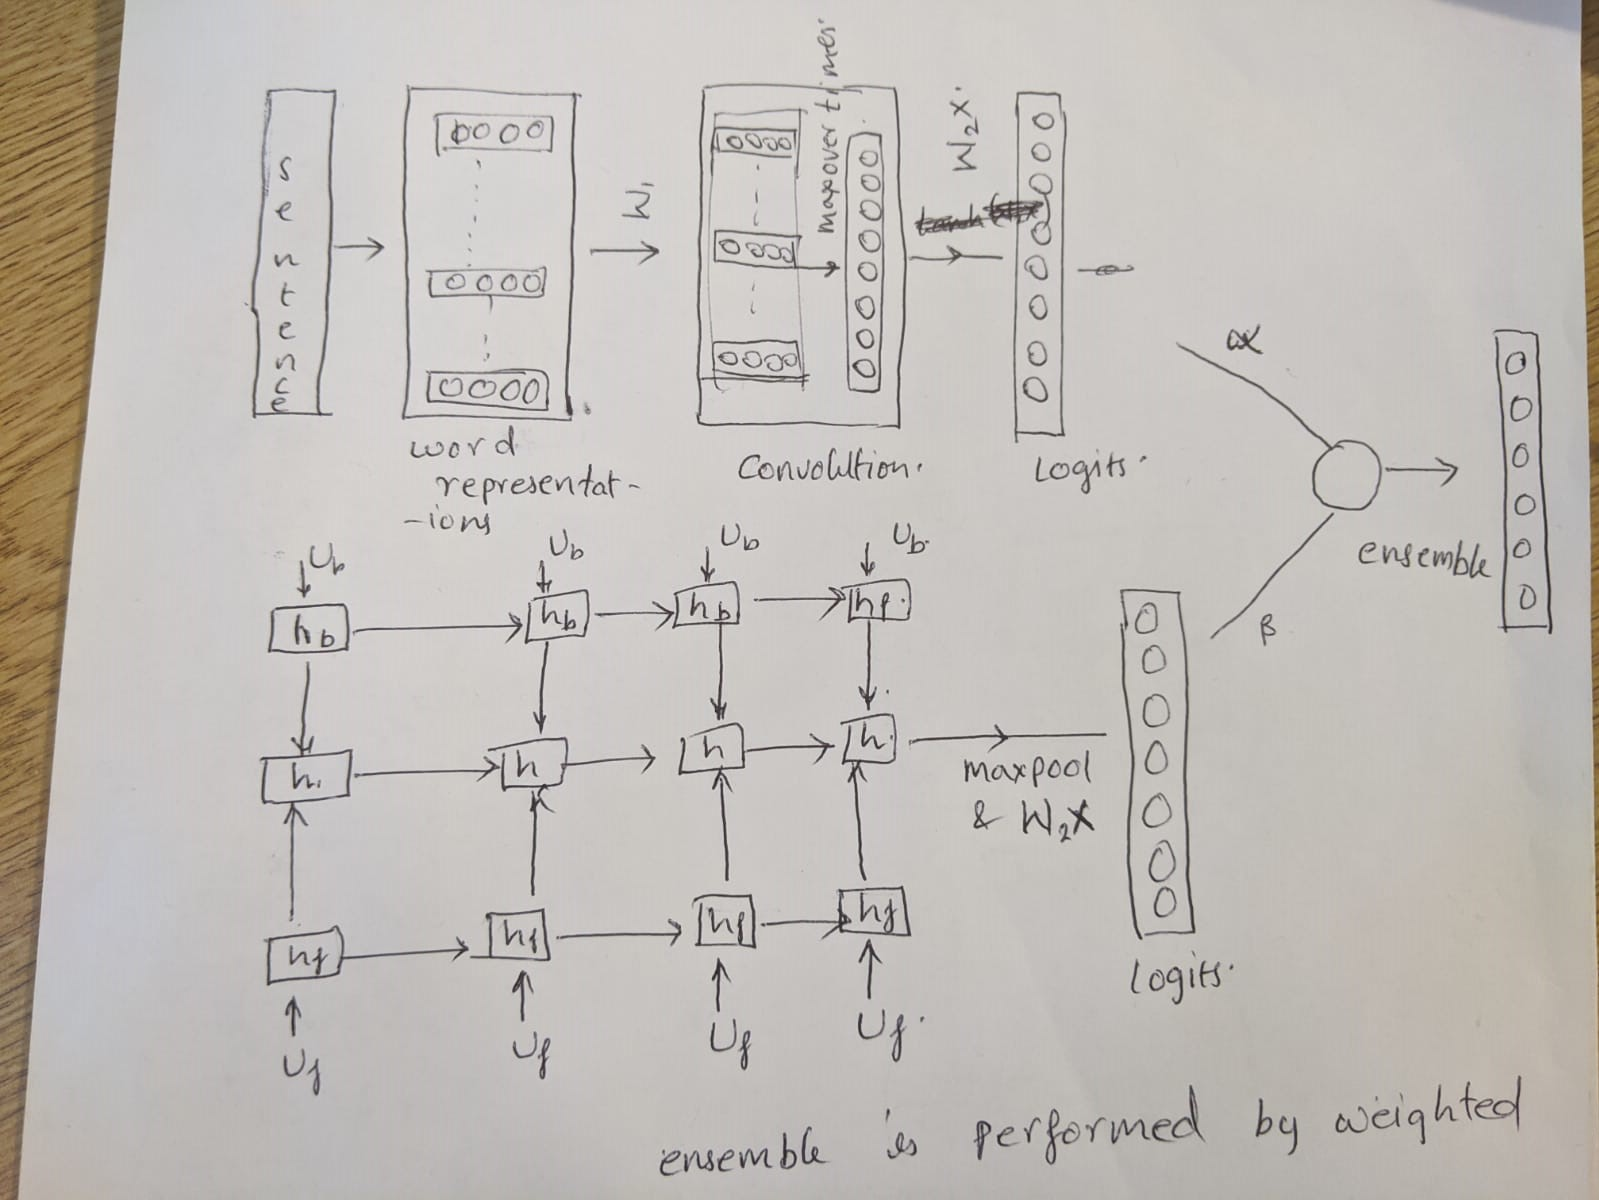 sentence
word
representat-
-ions
W1
maxover times
Convolution.
W2X.
Logits.
α
β
ensemble
Ub
Ub
Ub
Ub.
hb
hb
hb
hf.
h.
h
h
h.
maxpool
& W2X
hf
hf
hf
hf
Uf
Uf
Uf
Uf.
Logits.
ensemble is performed by weighted